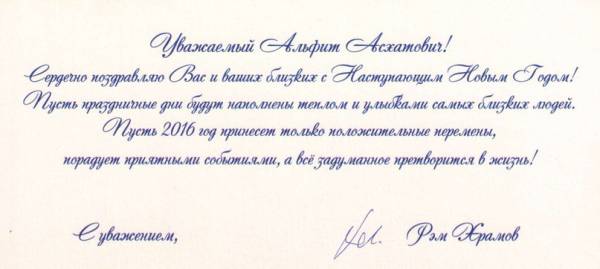 Уважаемый Альфит Асхатович!
Сердечно поздравляю Вас и ваших близких с Наступающим Новым Годом!
Пусть праздничные дни будут наполнены теплом и улыбками самых близких людей.
Пусть 2016 год принесет только положительные перемены,
порадует приятными событиями, а всё задуманное претворится в жизнь!
С уважением, Рэм Храмов